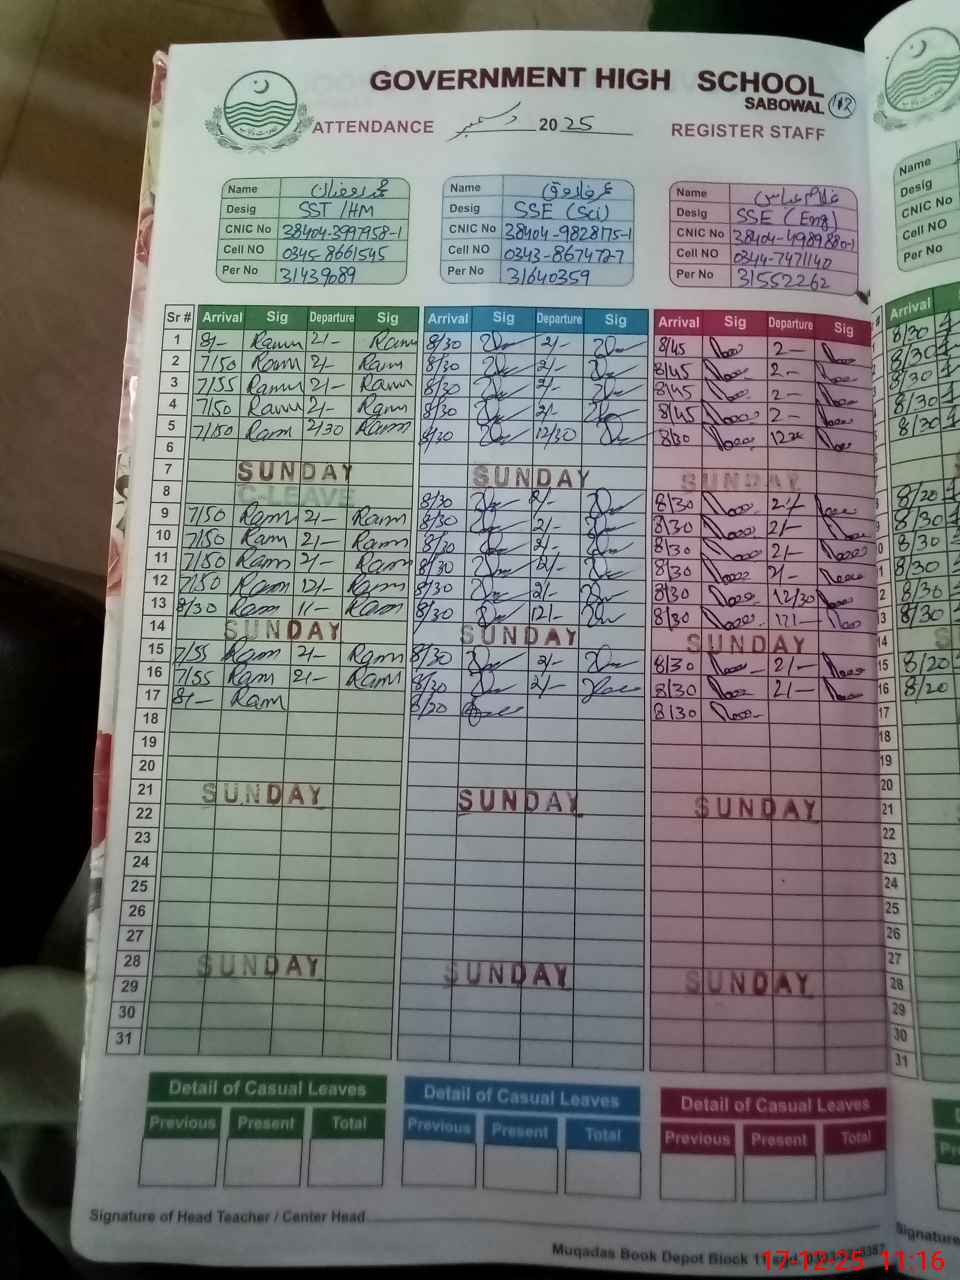 GOVERNMENT HIGH SCHOOL
SABOWAL
ATTENDANCE دسمبر 2025 REGISTER STAFF
Name محمد رمضان Name عمر فاروق Name غلام عباس Name
Desig SST /HM Desig SSE (Sci) Desig SSE (Eng) Desig
CNIC No 38404-3997958-1 CNIC No 38404-9828175-1 CNIC No 38404-4989880-1 CNIC No
Cell NO 0345-8661545 Cell NO 0343-867472-7 Cell NO 0344-7471140 Cell NO
Per No 31439089 Per No 31640359 Per No 31552262 Per No
Sr # Arrival Sig Departure Sig Arrival Sig Departure Sig Arrival Sig Departure Sig # Arrival
1 8/- Ram 2/- Ram 8/30 2/- 8/45 2- 8/30
2 7/50 Ram 2/- Ram 8/30 2/- 8/45 2- 8/30
3 7/55 Ram 2/- Ram 8/30 2/- 8/45 2- 8/30
4 7/50 Ram 2/- Ram 8/30 2/- 8/45 2- 8/30
5 7/50 Ram 2/30 Ram 8/30 12/30 8/30 8/30
6
7 SUNDAY SUNDAY SUNDAY
8 C-LEAVE 8/30 2/- 8/30 2/- 8/20
9 7/50 Ram 2/- Ram 8/30 2/- 8/30 2/- 8/30
10 7/50 Ram 2/- Ram 8/30 2/- 8/30 2/- 8/30
11 7/50 Ram 2/- Ram 8/30 2/- 8/30 2/- 8/30
12 7/50 Ram 12/- Ram 8/30 2/- 8/30 12/30 8/30
13 8/30 Ram 11/- Ram 8/30 12/- 8/30 8/30
14 SUNDAY SUNDAY SUNDAY 14
15 7/55 Ram 2/- Ram 8/30 2/- 8/30 2/- 15 8/20
16 7/55 Ram 2/- Ram 8/30 2/- 8/30 2/- 16 8/20
17 8/- Ram 8/20 8/30 17
18 18
19 19
20 20
21 SUNDAY SUNDAY SUNDAY 21
22 22
23 23
24 24
25 25
26 26
27 27
28 SUNDAY SUNDAY SUNDAY 28
29 29
30 30
31 31
Detail of Casual Leaves Detail of Casual Leaves Detail of Casual Leaves
Previous Present Total Previous Present Total Previous Present Total
Signature of Head Teacher / Center Head Signature
Muqadas Book Depot Block
17-12-25 11:16